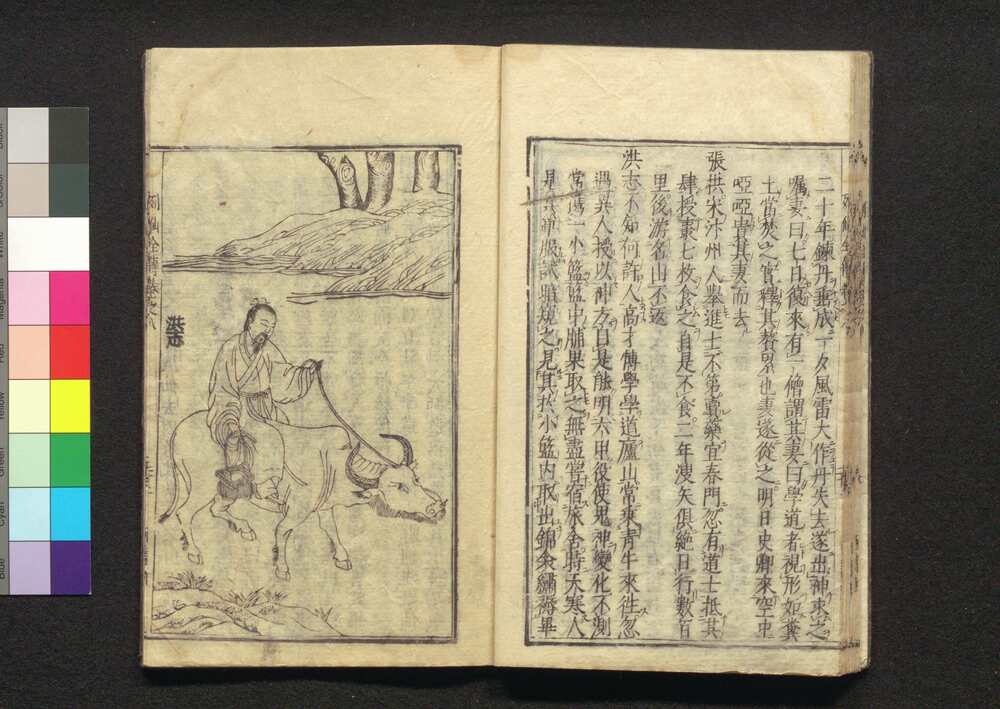 二十年鍊丹垂成一夕風雷大作丹失去遂出神東之
囑妻曰七日復來有一僧謂其妻曰學道者視形如糞
土當焚之官釋其贅累也妻遂從之明日史卿來空中
啞啞責其妻而去
張拱宋汴州人舉進士不第賣藥宜春門忽有道士抵其
肆授棗七枚食之自是不食二年溲矢俱絕日行數百
里後游名山不返
洪志不知何許人高才博學學道廬山常乘青牛來往忽
遇異人授以神方日是能明六甲役使鬼神變化不測
常攜一小籃籃中脯果取之無盡嘗宿旅舍時天寒人
見其單服
之見其於小籃內取出錦衾繡褥畢
洪志
列仙全傳卷之八
Blue
Cyan
Green
Yellow
Red
Magenta
White
Black